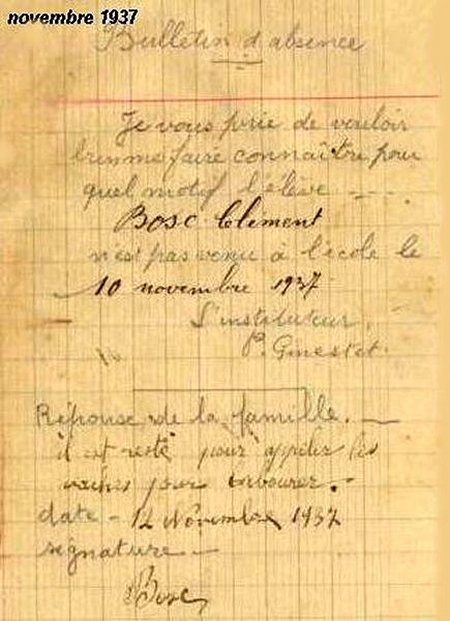 novembre 1937
Bulletin d'absence
Je vous prie de vouloir
bien me faire connaître pour
quel motif l'élève ----
Bosc Clément
n'est pas venu à l'école le
10 novembre 1937
L'instituteur.
P. Ginestet.
Réponse de la famille. —
il est resté pour appeler les
vaches pour labourer. -
date - 12 Novembre 1937
signature —
Bosc